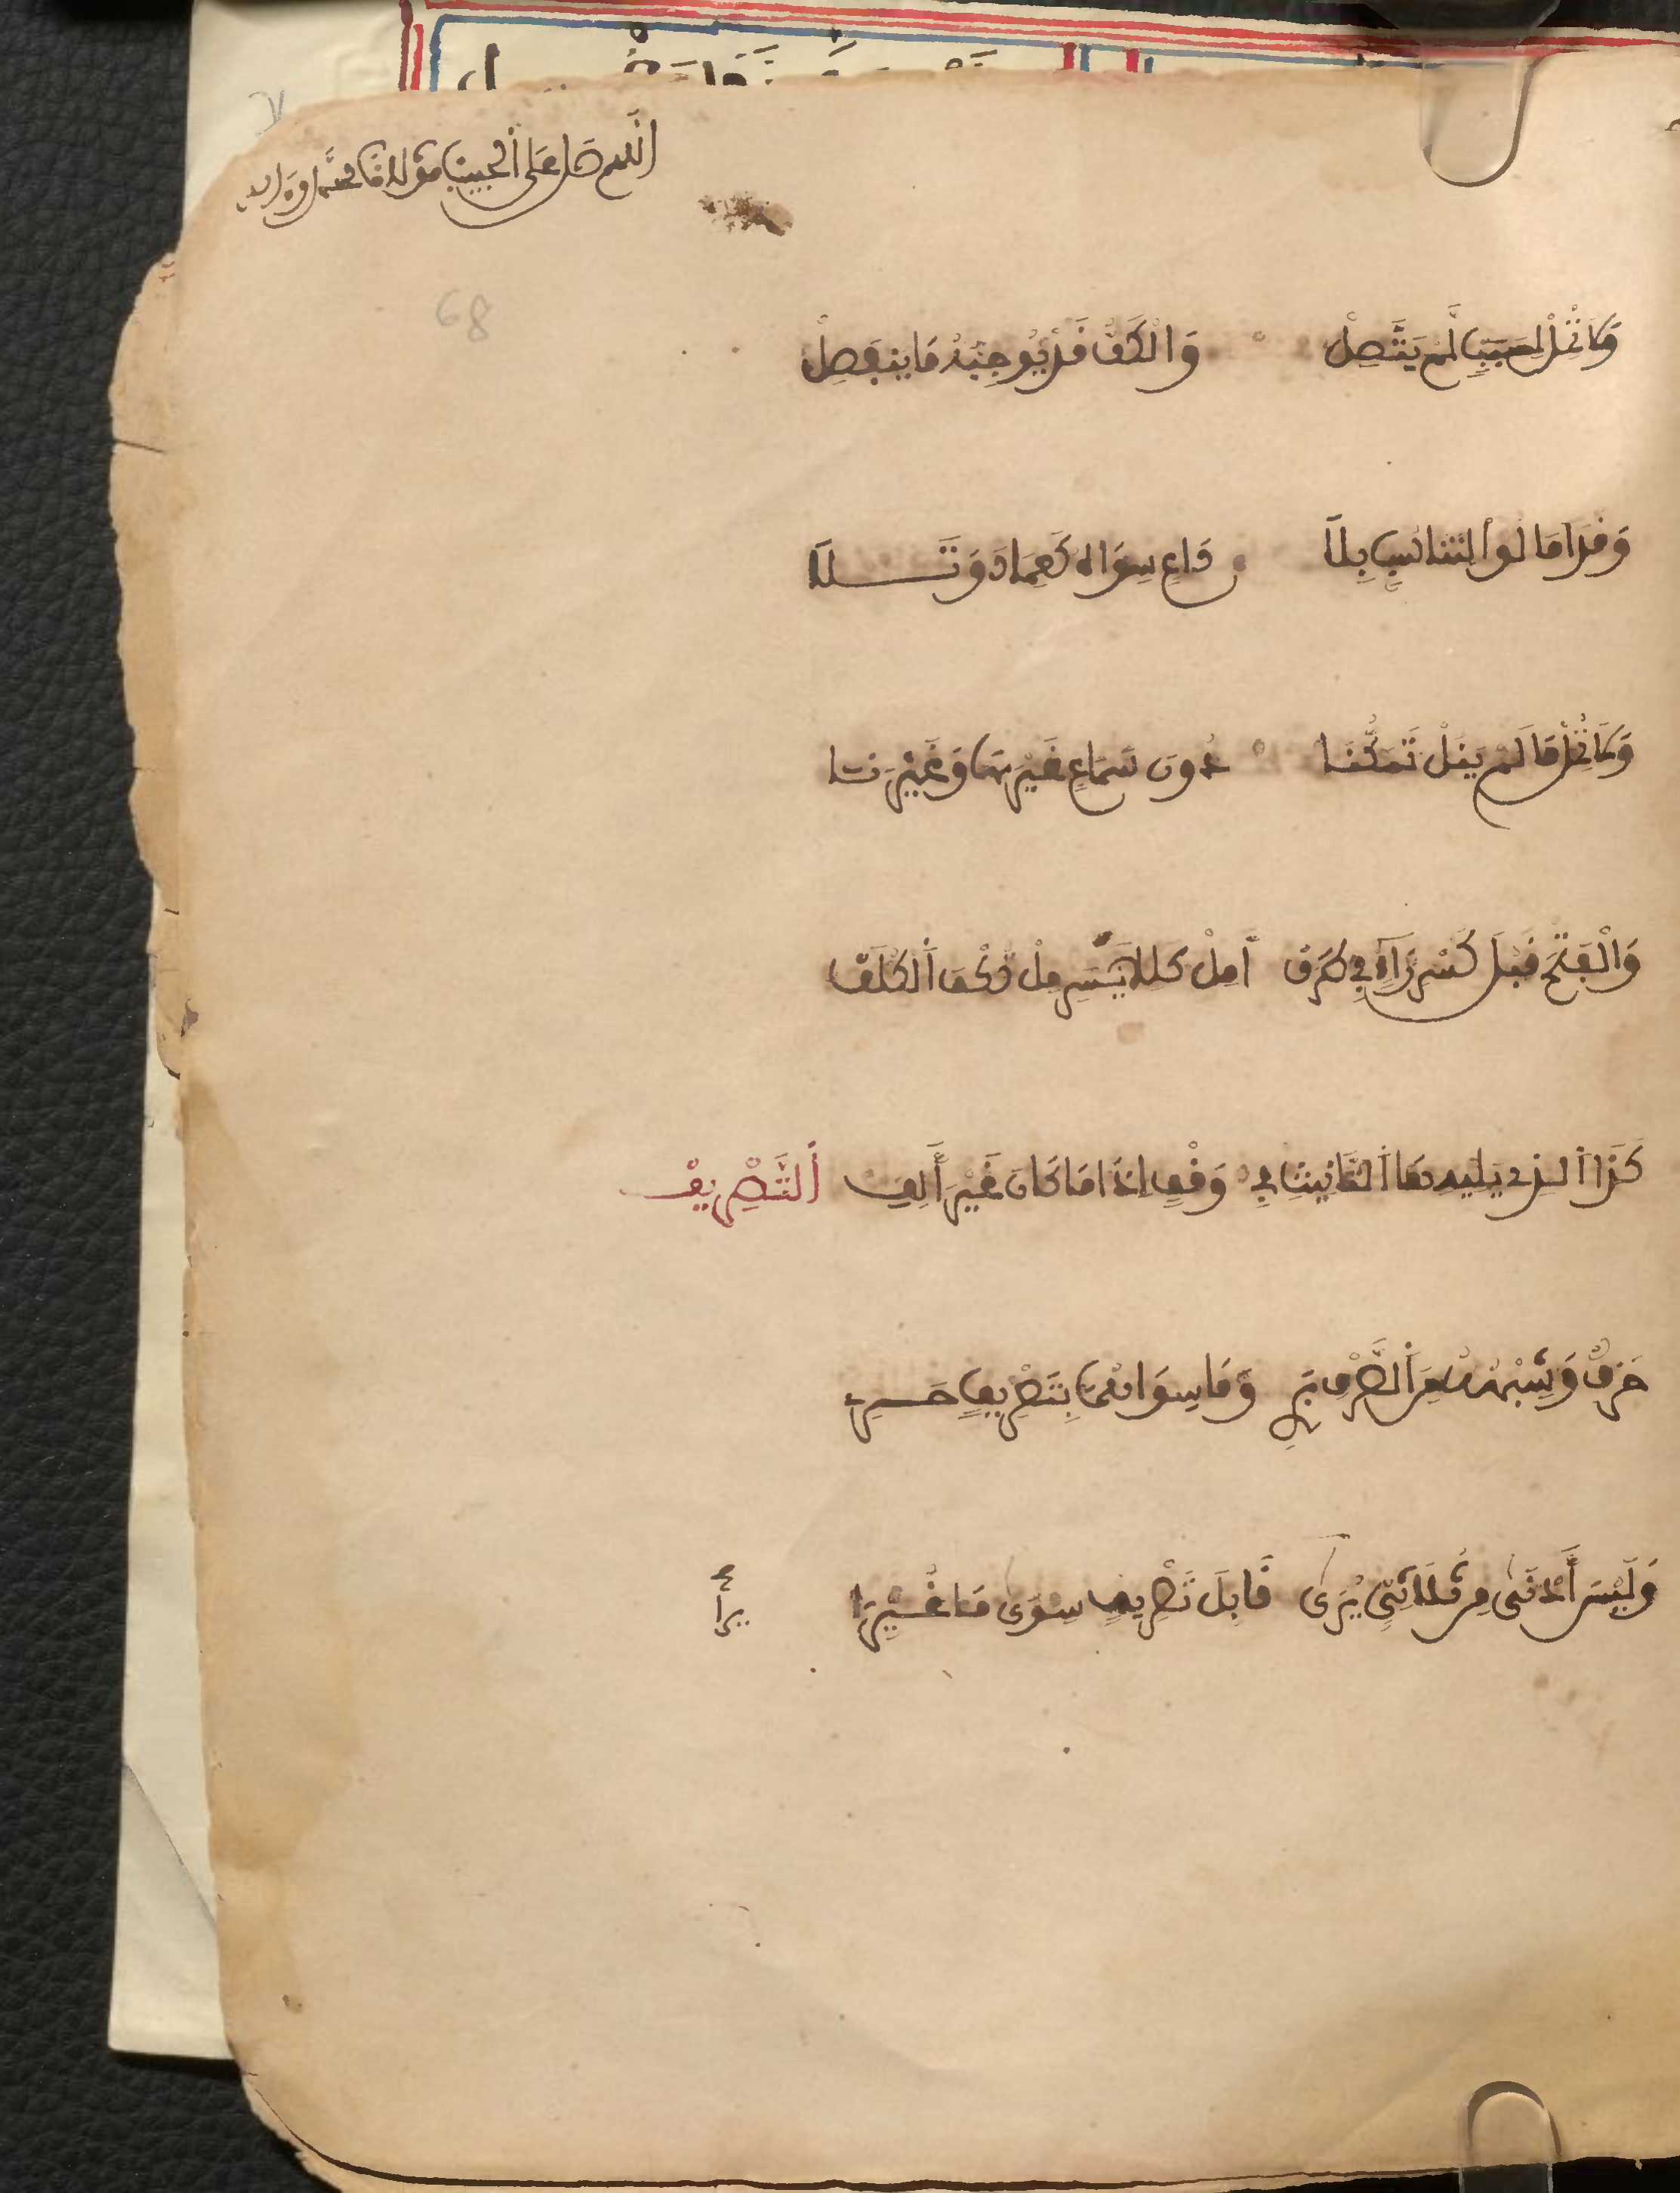 اللهم صل على الحبيب مولانا محمد وءاله
68
وَلاَ تُمِلْ لِسَبَبٍ لَّمْ يَتَّصِلْ وَالْكَفُّ قَدْ يُوجِبُهُ مَا يَنفَصِلْ
وَقَدْ أَمَالُواْ لِتَنَاسُبٍ بِلاَ دَاعٍ سِوَاهُ كَعِمَادٍ وَتَلاَ
وَلاَ تُمِلْ مَا لَمْ يَنَلْ تَمَكُّنَا دُونَ سَمَاعٍ غَيْرَ هَا وَغَيْرَ نَا
وَالْفَتْحَ قَبْلَ كَسْرِ رَاءٍ فِي طَرَفْ أَمِلْ كَللاَيْسَرِ مِلْ تُكْفَ اَلْكُلَفْ
كَذَا اَلذِي يَلِيهِ هَا اَلتَّانِيثِ فِي وَقْفٍ إِذَا مَا كَانَ غَيْرَ أَلِفِ اَلتَّصْرِيفْ
حَرْفٌ وَشِبْهُهُ مِنَ اَلصَّرْفِ بَرِي وَمَا سِوَاهُمَا بِتَصْرِيفٍ حَرِي
وَلَيْسَ أَدْنَى مِن ثُلاَثِيٍّ يُرَى قَابِلَ تَصْرِيفٍ سِوَى مَا غُيِّرَا